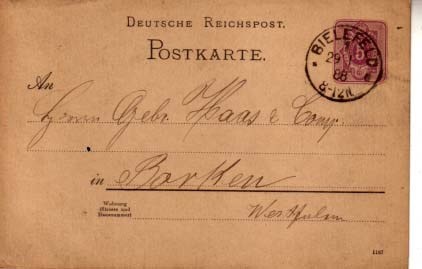 DEUTSCHE REICHSPOST.
POSTKARTE.
BIELEFELD
29
88
8-12N.
5
An
Herrn Gebr. Haas & Comp.
in Borken
Wohnung
(Strasse und
Hausnummer)
Westfalen
1187